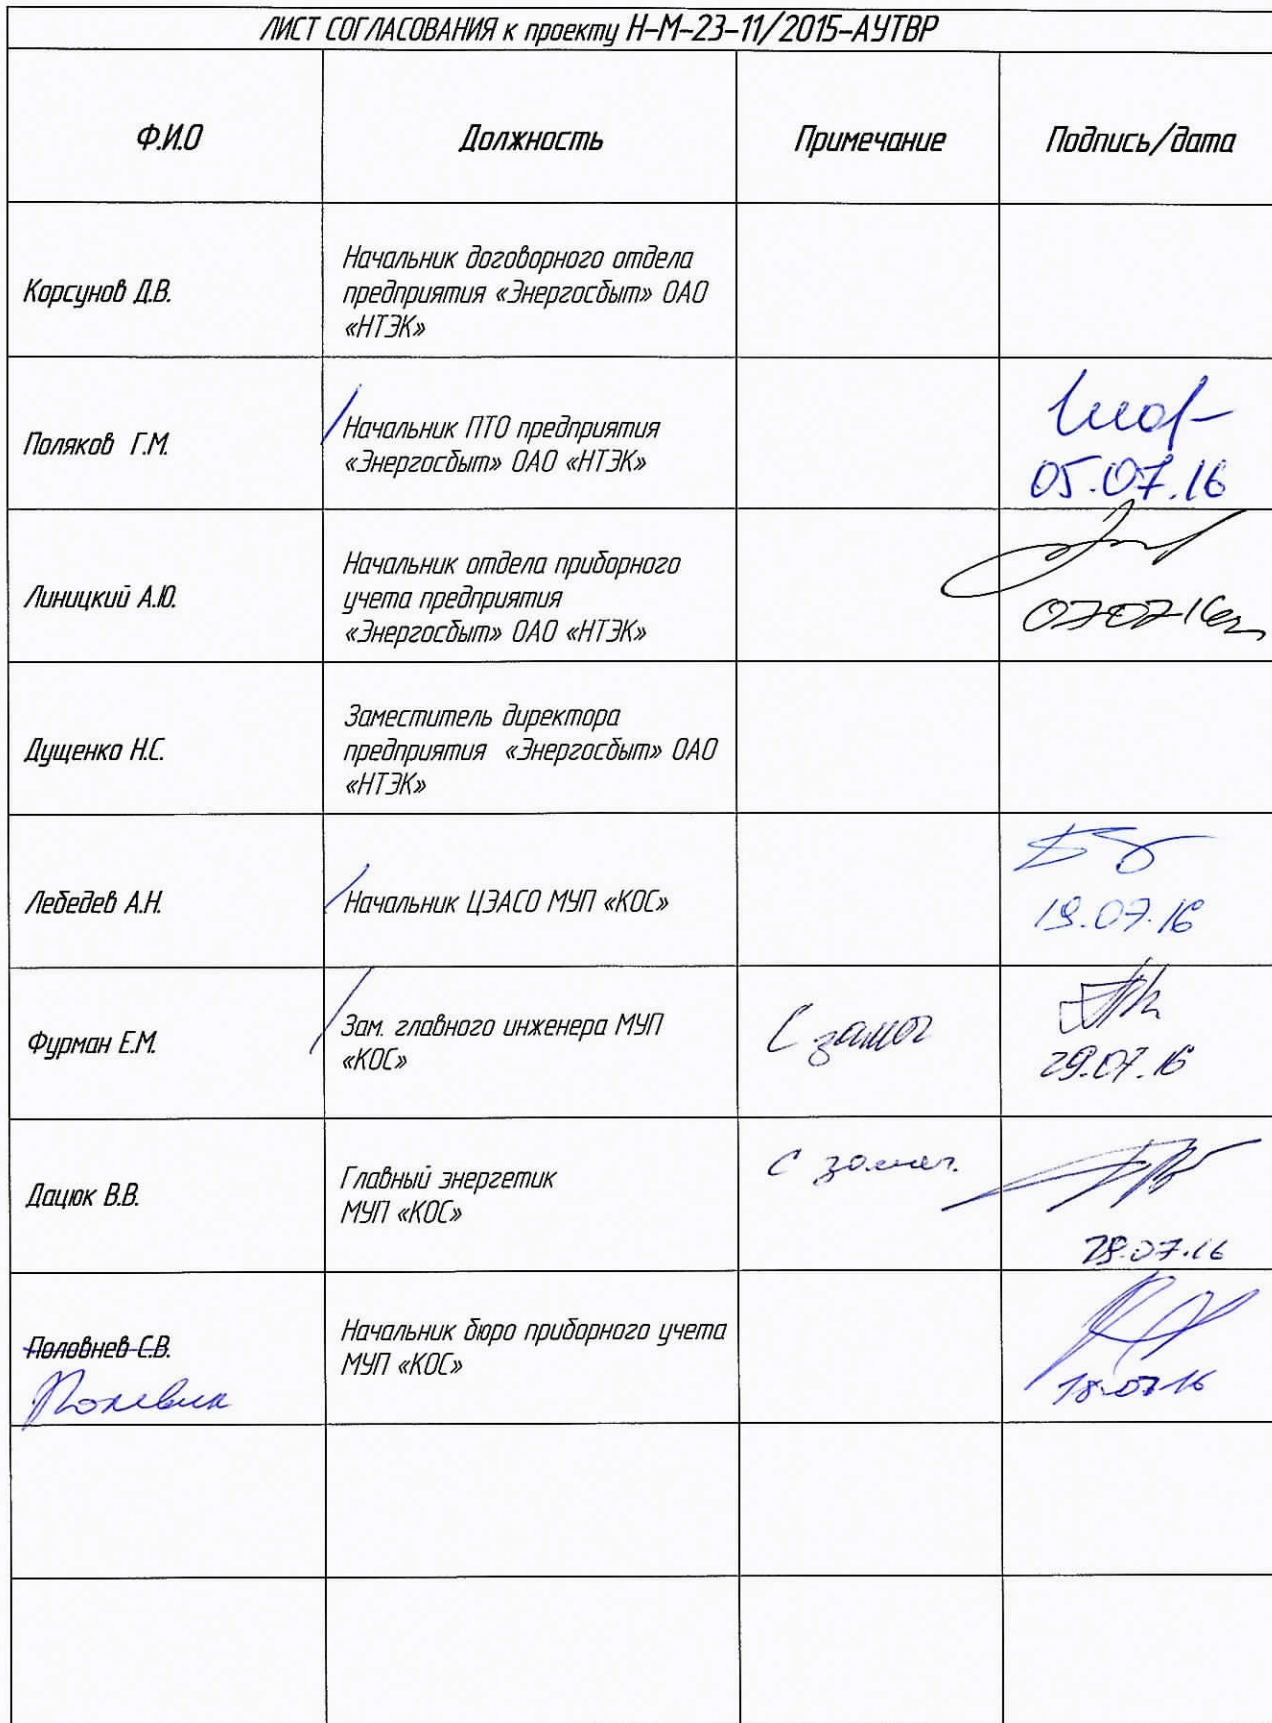 ЛИСТ СОГЛАСОВАНИЯ к проекту Н-М-23-11/2015-АУТВР
Ф.И.О Должность Примечание Подпись/дата
Корсунов Д.В.
Начальник договорного отдела
предприятия «Энергосбыт» ОАО
«НТЭК»
Поляков Г.М.
Начальник ПТО предприятия
«Энергосбыт» ОАО «НТЭК»
05.07.16
Линицкий А.Ю.
Начальник отдела приборного
учета предприятия
«Энергосбыт» ОАО «НТЭК»
Дущенко Н.С.
Заместитель директора
предприятия «Энергосбыт» ОАО
«НТЭК»
Лебедев А.Н.
Начальник ЦЭАСО МУП «КОС»
19.07.16
Фурман Е.М.
Зам. главного инженера МУП
«КОС»
С замеч
29.07.16
Дацюк В.В.
Главный энергетик
МУП «КОС»
С замеч.
28.07.16
Половнев С.В.
Начальник бюро приборного учета
МУП «КОС»
18.07.16